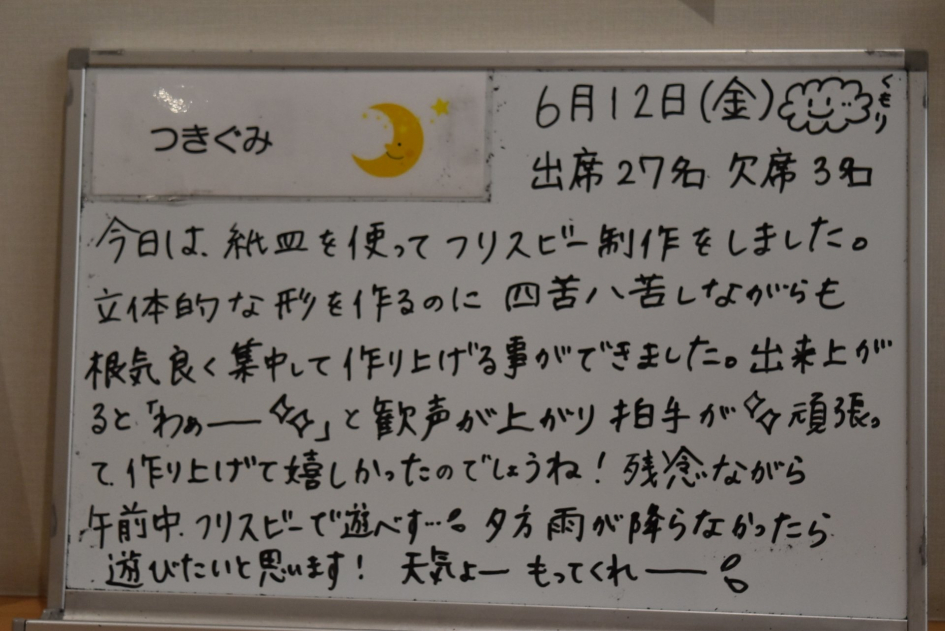 つきぐみ
6月12日(金) くもり
出席27名 欠席3名
今日は、紙皿を使ってフリスビー制作をしました。
立体的な形を作るのに 四苦八苦しながらも
根気良く集中して作り上げる事ができました。出来上が
ると「わぁー✧✧」と歓声が上がり拍手が✧✧頑張っ
て作り上げて嬉しかったのでしょうね！残念ながら
午前中フリスビーで遊べず…。夕方雨が降らなかったら
遊びたいと思います！ 天気よー もってくれー。